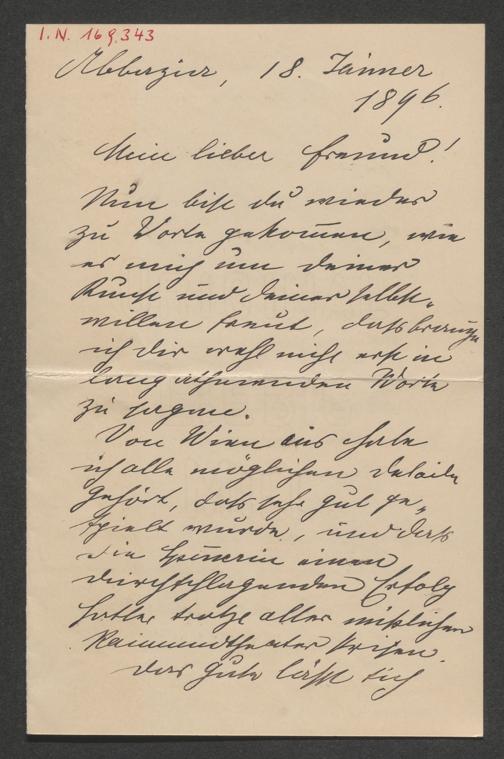 I.N. 169.343
Abbazia, 18. Jänner
1896.
Mein lieber Freund!
Nun bist du wieder
zu Worte gekommen, wie
es mich um deiner
Kunst und deiner selbst-
willen freut, dass brauche
ich dir wohl nicht erst in
lang athmenden Worte
zu sagen.
Von Wien aus habe
ich alle möglichen Details
gehört, dass sehr gut ge-
spielt wurde, und dass
die einen
durchschlagenden Erfolg
hatte trotz aller misslichen
Raimundtheater Krisen.
Das Gute lässt sich